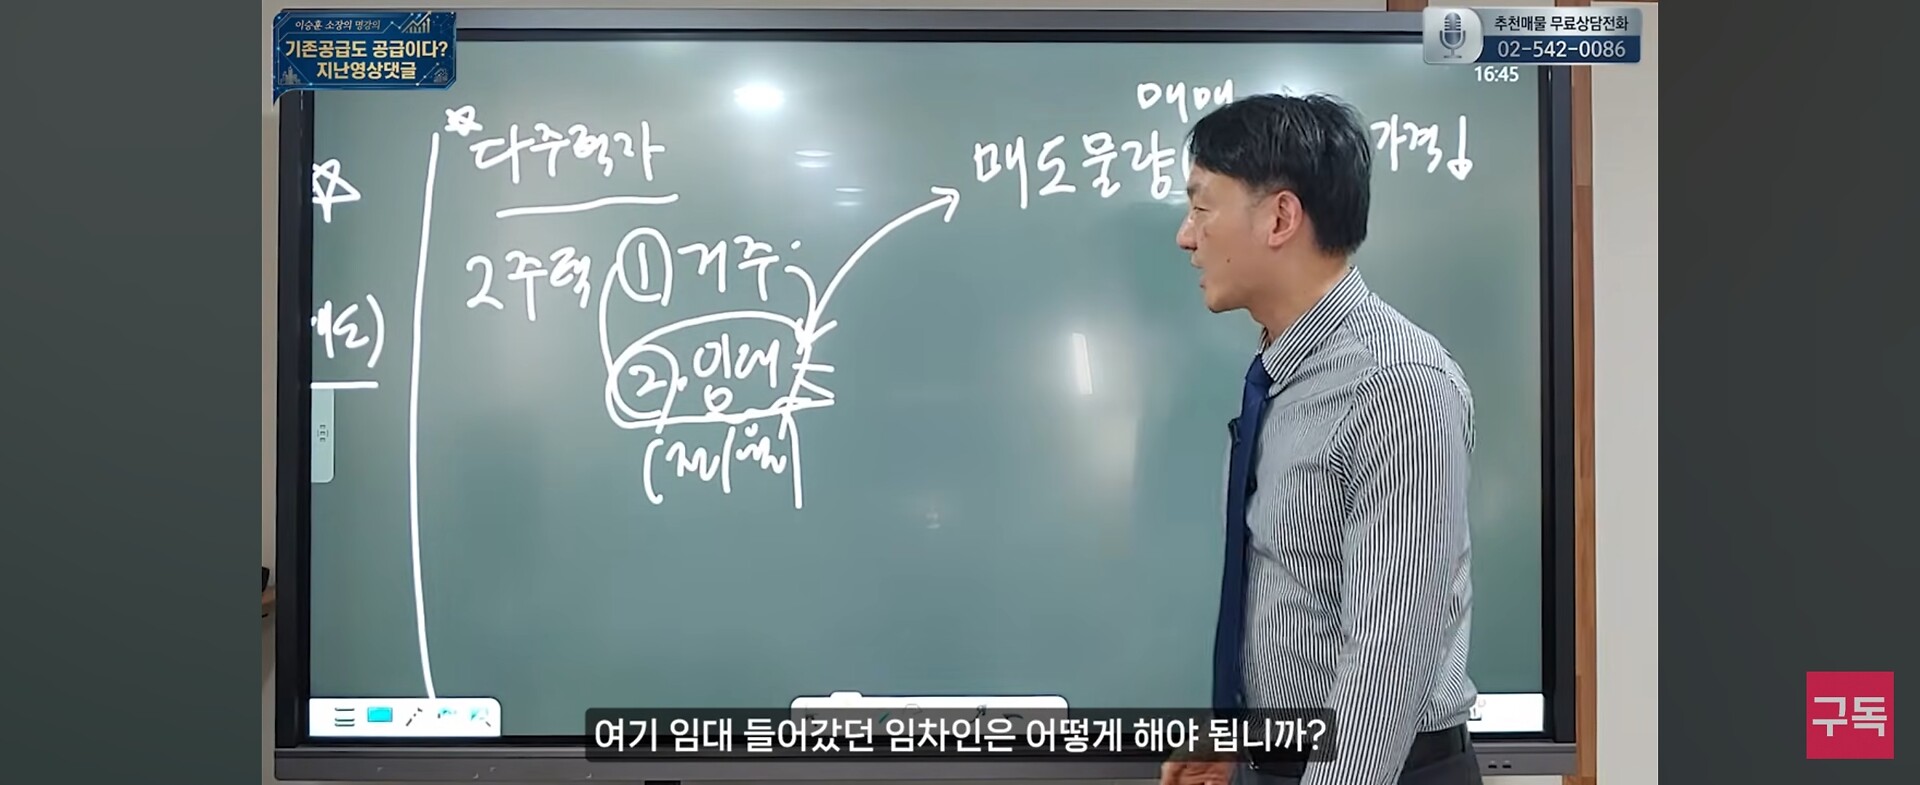 이승훈 소장의 명강의
기존공급도 공급이다?
지난영상댓글
추천매물 무료상담전화
02-542-0086
16:45
다주택자
2주택 ① 거주
② 임대
(전/월
매매
매도물량
가격↓
여기 임대 들어갔던 임차인은 어떻게 해야 됩니까?
구독